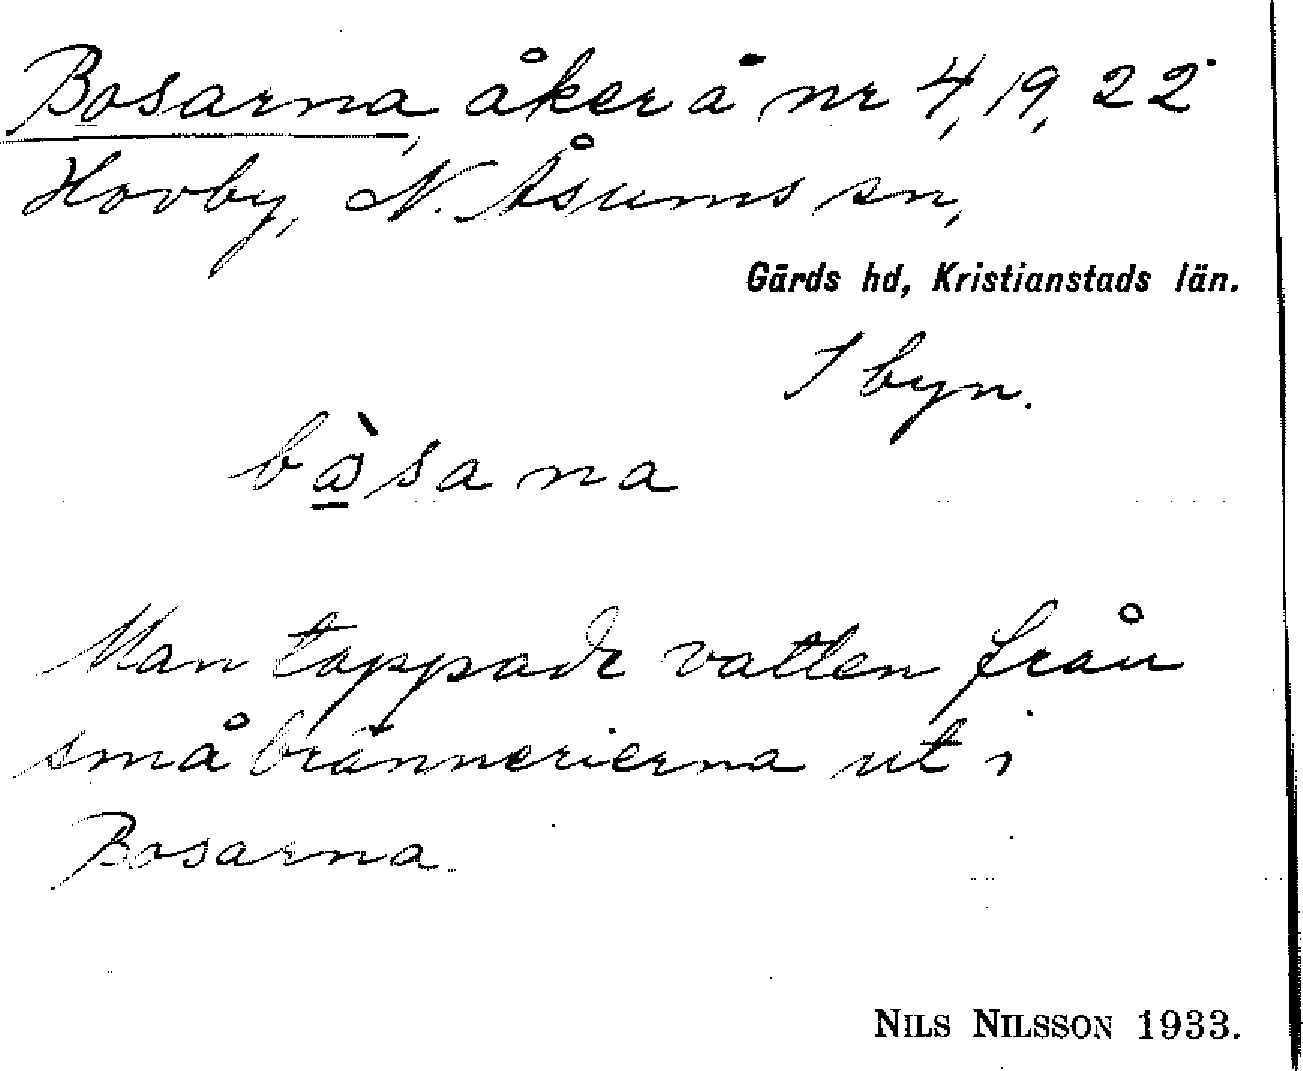 Bosarna, åker å nr 4, 19, 22
Hovby, N. Åsums sn,
Gärds hd, Kristianstads län.
I byn.
Man tappade vatten från
småbrännerierna ut i
Bosarna.
NILS NILSSON 1933.